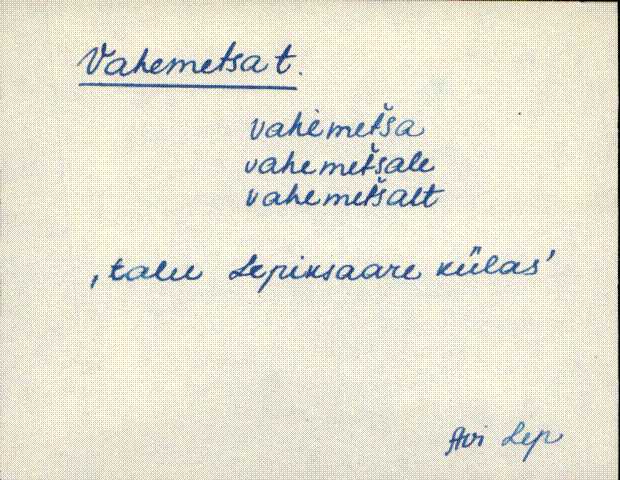 Vahemetsa t.
vahèmeťša
vahemeťšale
vahemeťšalt
‚talu Lepiksaare külas'
Avi Lep